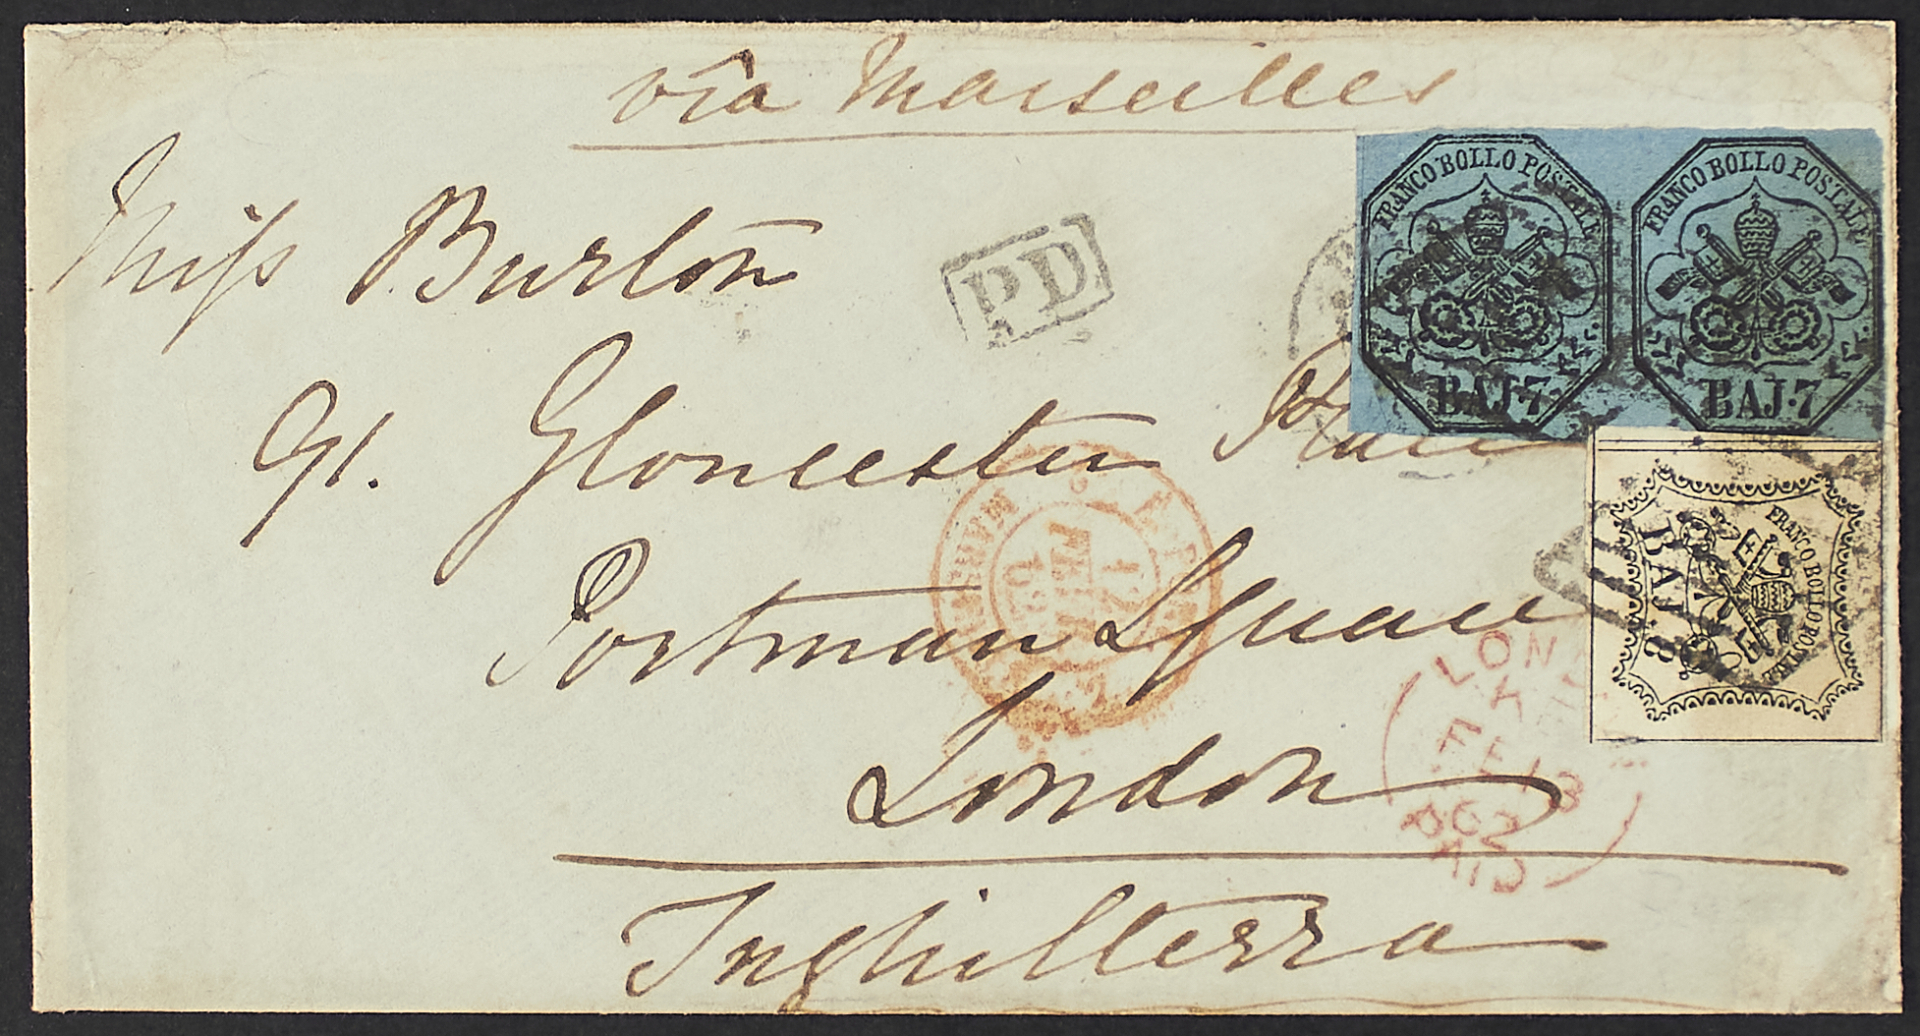 via Marseilles
Miss Burton
91. Gloucester Place
Portman Square
London
Inghilterra
P.D
FRANCO BOLLO POSTALE
BAJ·7
FRANCO BOLLO POSTALE
BAJ·7
FRANCO BOLLO POSTALE
BAJ. 8
MARSEILLE
12
FEVR
62
LON
FE 13
62